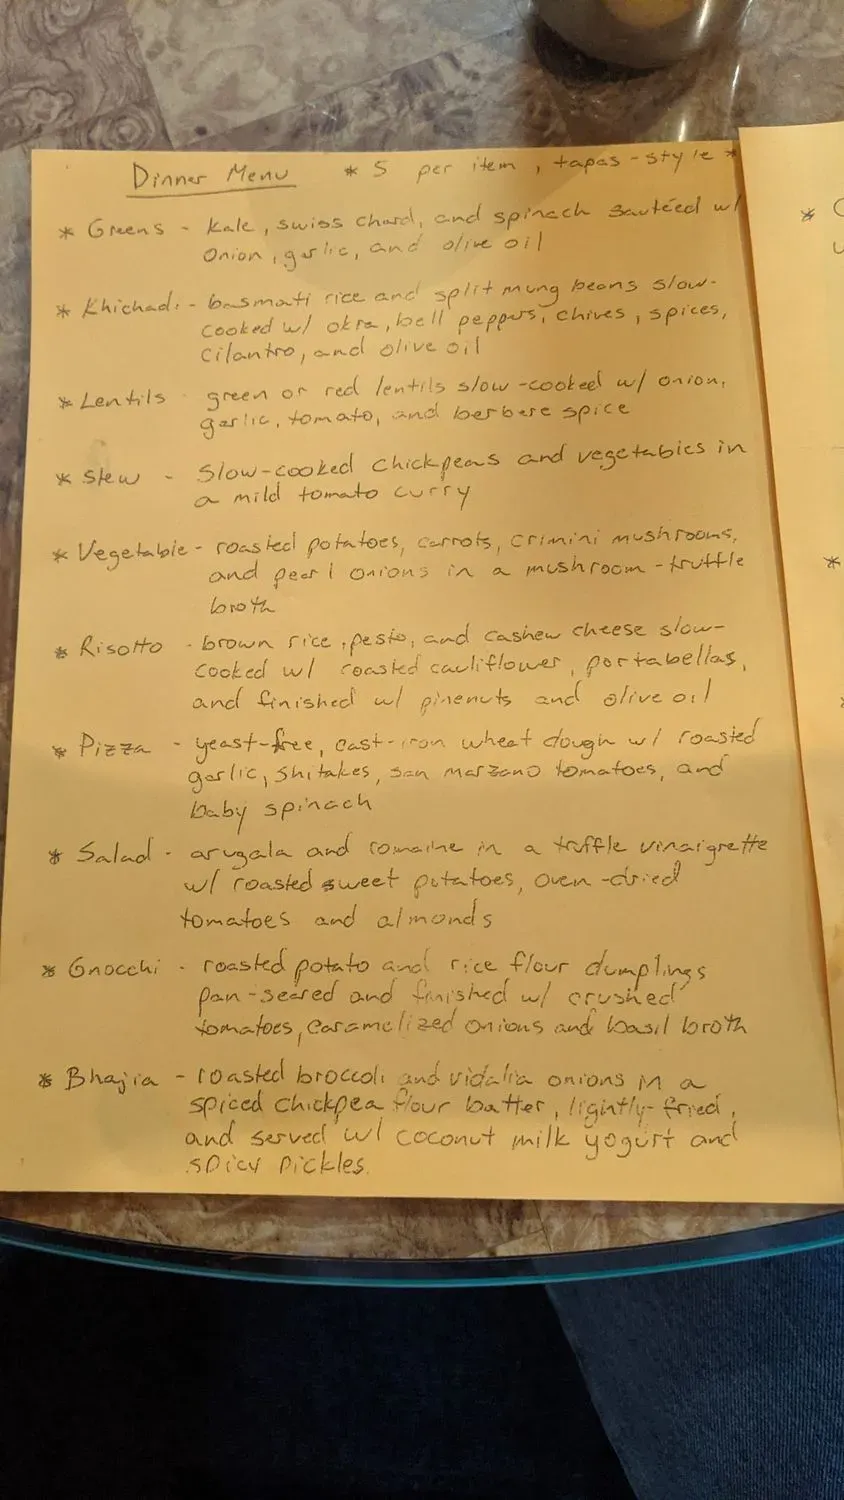 Dinner Menu * 5 per item, tapas-style *
* Greens - kale, swiss chard, and spinach sautéed w/
onion, garlic, and olive oil
* Khichadi - basmati rice and split mung beans slow-
cooked w/ okra, bell peppers, chives, spices,
cilantro, and olive oil
* Lentils - green or red lentils slow-cooked w/ onion,
garlic, tomato, and berbere spice
* Stew - Slow-cooked chickpeas and vegetables in
a mild tomato curry
* Vegetable - roasted potatoes, carrots, crimini mushrooms,
and pearl onions in a mushroom-truffle
broth
* Risotto - brown rice, pesto, and cashew cheese slow-
cooked w/ roasted cauliflower, portabellas,
and finished w/ pinenuts and olive oil
* Pizza - yeast-free, cast-iron wheat dough w/ roasted
garlic, shitakes, san marzano tomatoes, and
baby spinach
* Salad - arugala and romaine in a truffle vinaigrette
w/ roasted sweet potatoes, oven-dried
tomatoes and almonds
* Gnocchi - roasted potato and rice flour dumplings
pan-seared and finished w/ crushed
tomatoes, caramelized onions and basil broth
* Bhajia - roasted broccoli and vidalia onions in a
spiced chickpea flour batter, lightly-fried,
and served w/ coconut milk yogurt and
spicy pickles.